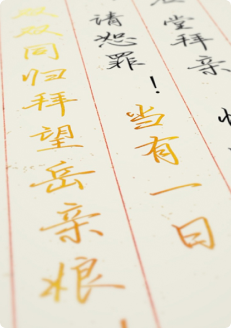 堂拜亲
请恕罪！当有一日
双双同归拜望岳亲娘